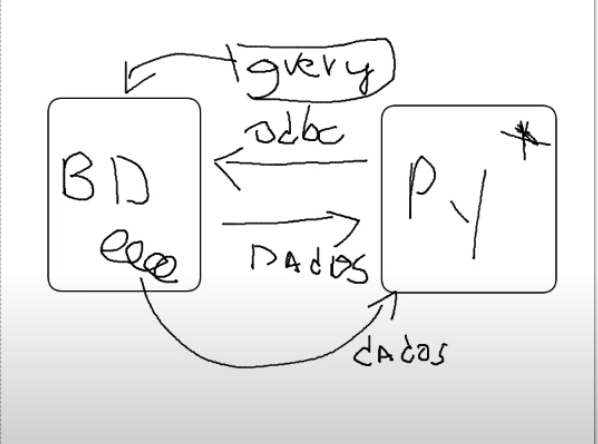 query
odbc
BD
Py *
DAdOS
dAdos